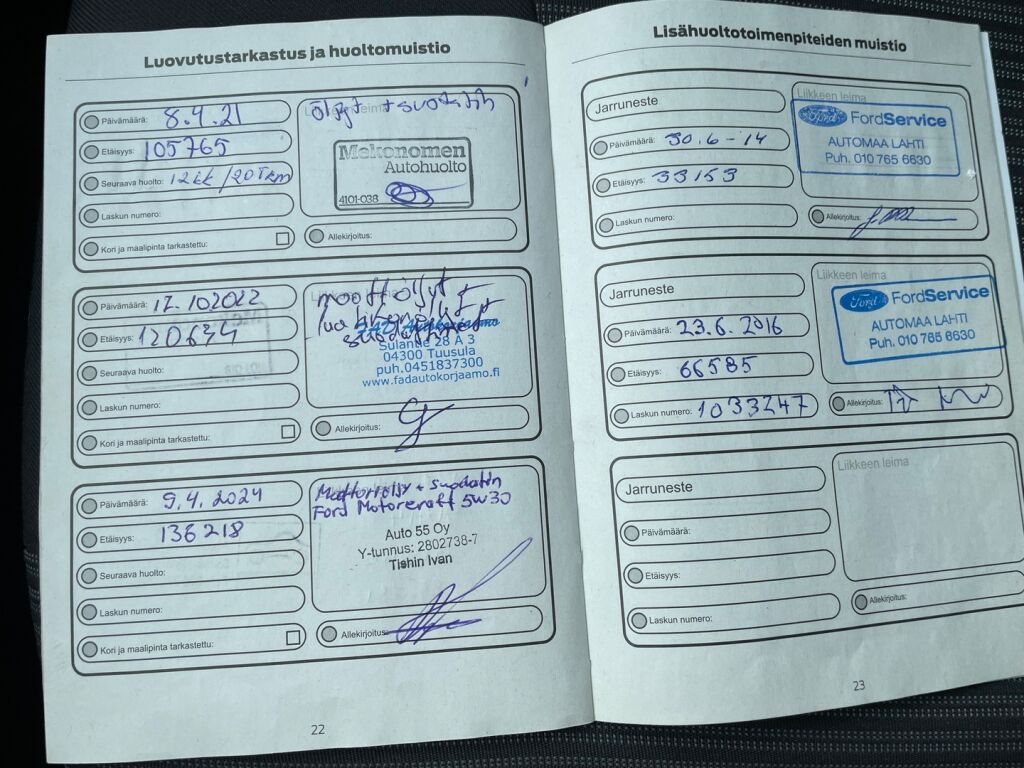 Luovutustarkastus ja huoltomuistio
Päivämäärä: 8.4.21
Etäisyys: 105765
Seuraava huolto: 12kk/20Tkm
Laskun numero:
Kori ja maalipinta tarkastettu:
Öljyt + suodatin
Mekonomen
Autohuolto
4101-038
Allekirjoitus:
Päivämäärä: 12.102022
Etäisyys:
Seuraava huolto:
Laskun numero:
Kori ja maalipinta tarkastettu:
Sulantie 28 A 3
04300 Tuusula
puh.0451837300
www.fadautokorjaamo.fi
Allekirjoitus:
Päivämäärä: 9.4.2024
Etäisyys: 136218
Seuraava huolto:
Laskun numero:
Kori ja maalipinta tarkastettu:
Mottoriöljy + suodatin
Ford Motorcraft 5W30
Auto 55 Oy
Y-tunnus: 2802738-7
Tishin Ivan
Allekirjoitus:
22
Lisähuoltotoimenpiteiden muistio
Jarruneste
Päivämäärä: 30.6-14
Etäisyys: 33153
Laskun numero:
Liikkeen leima
Ford FordService
AUTOMAA LAHTI
Puh. 010 765 6630
Allekirjoitus:
Jarruneste
Päivämäärä: 23.6.2016
Etäisyys: 66585
Laskun numero: 1033247
Liikkeen leima
Ford FordService
AUTOMAA LAHTI
Puh. 010 765 6630
Allekirjoitus:
Jarruneste
Päivämäärä:
Etäisyys:
Laskun numero:
Liikkeen leima
Allekirjoitus:
23